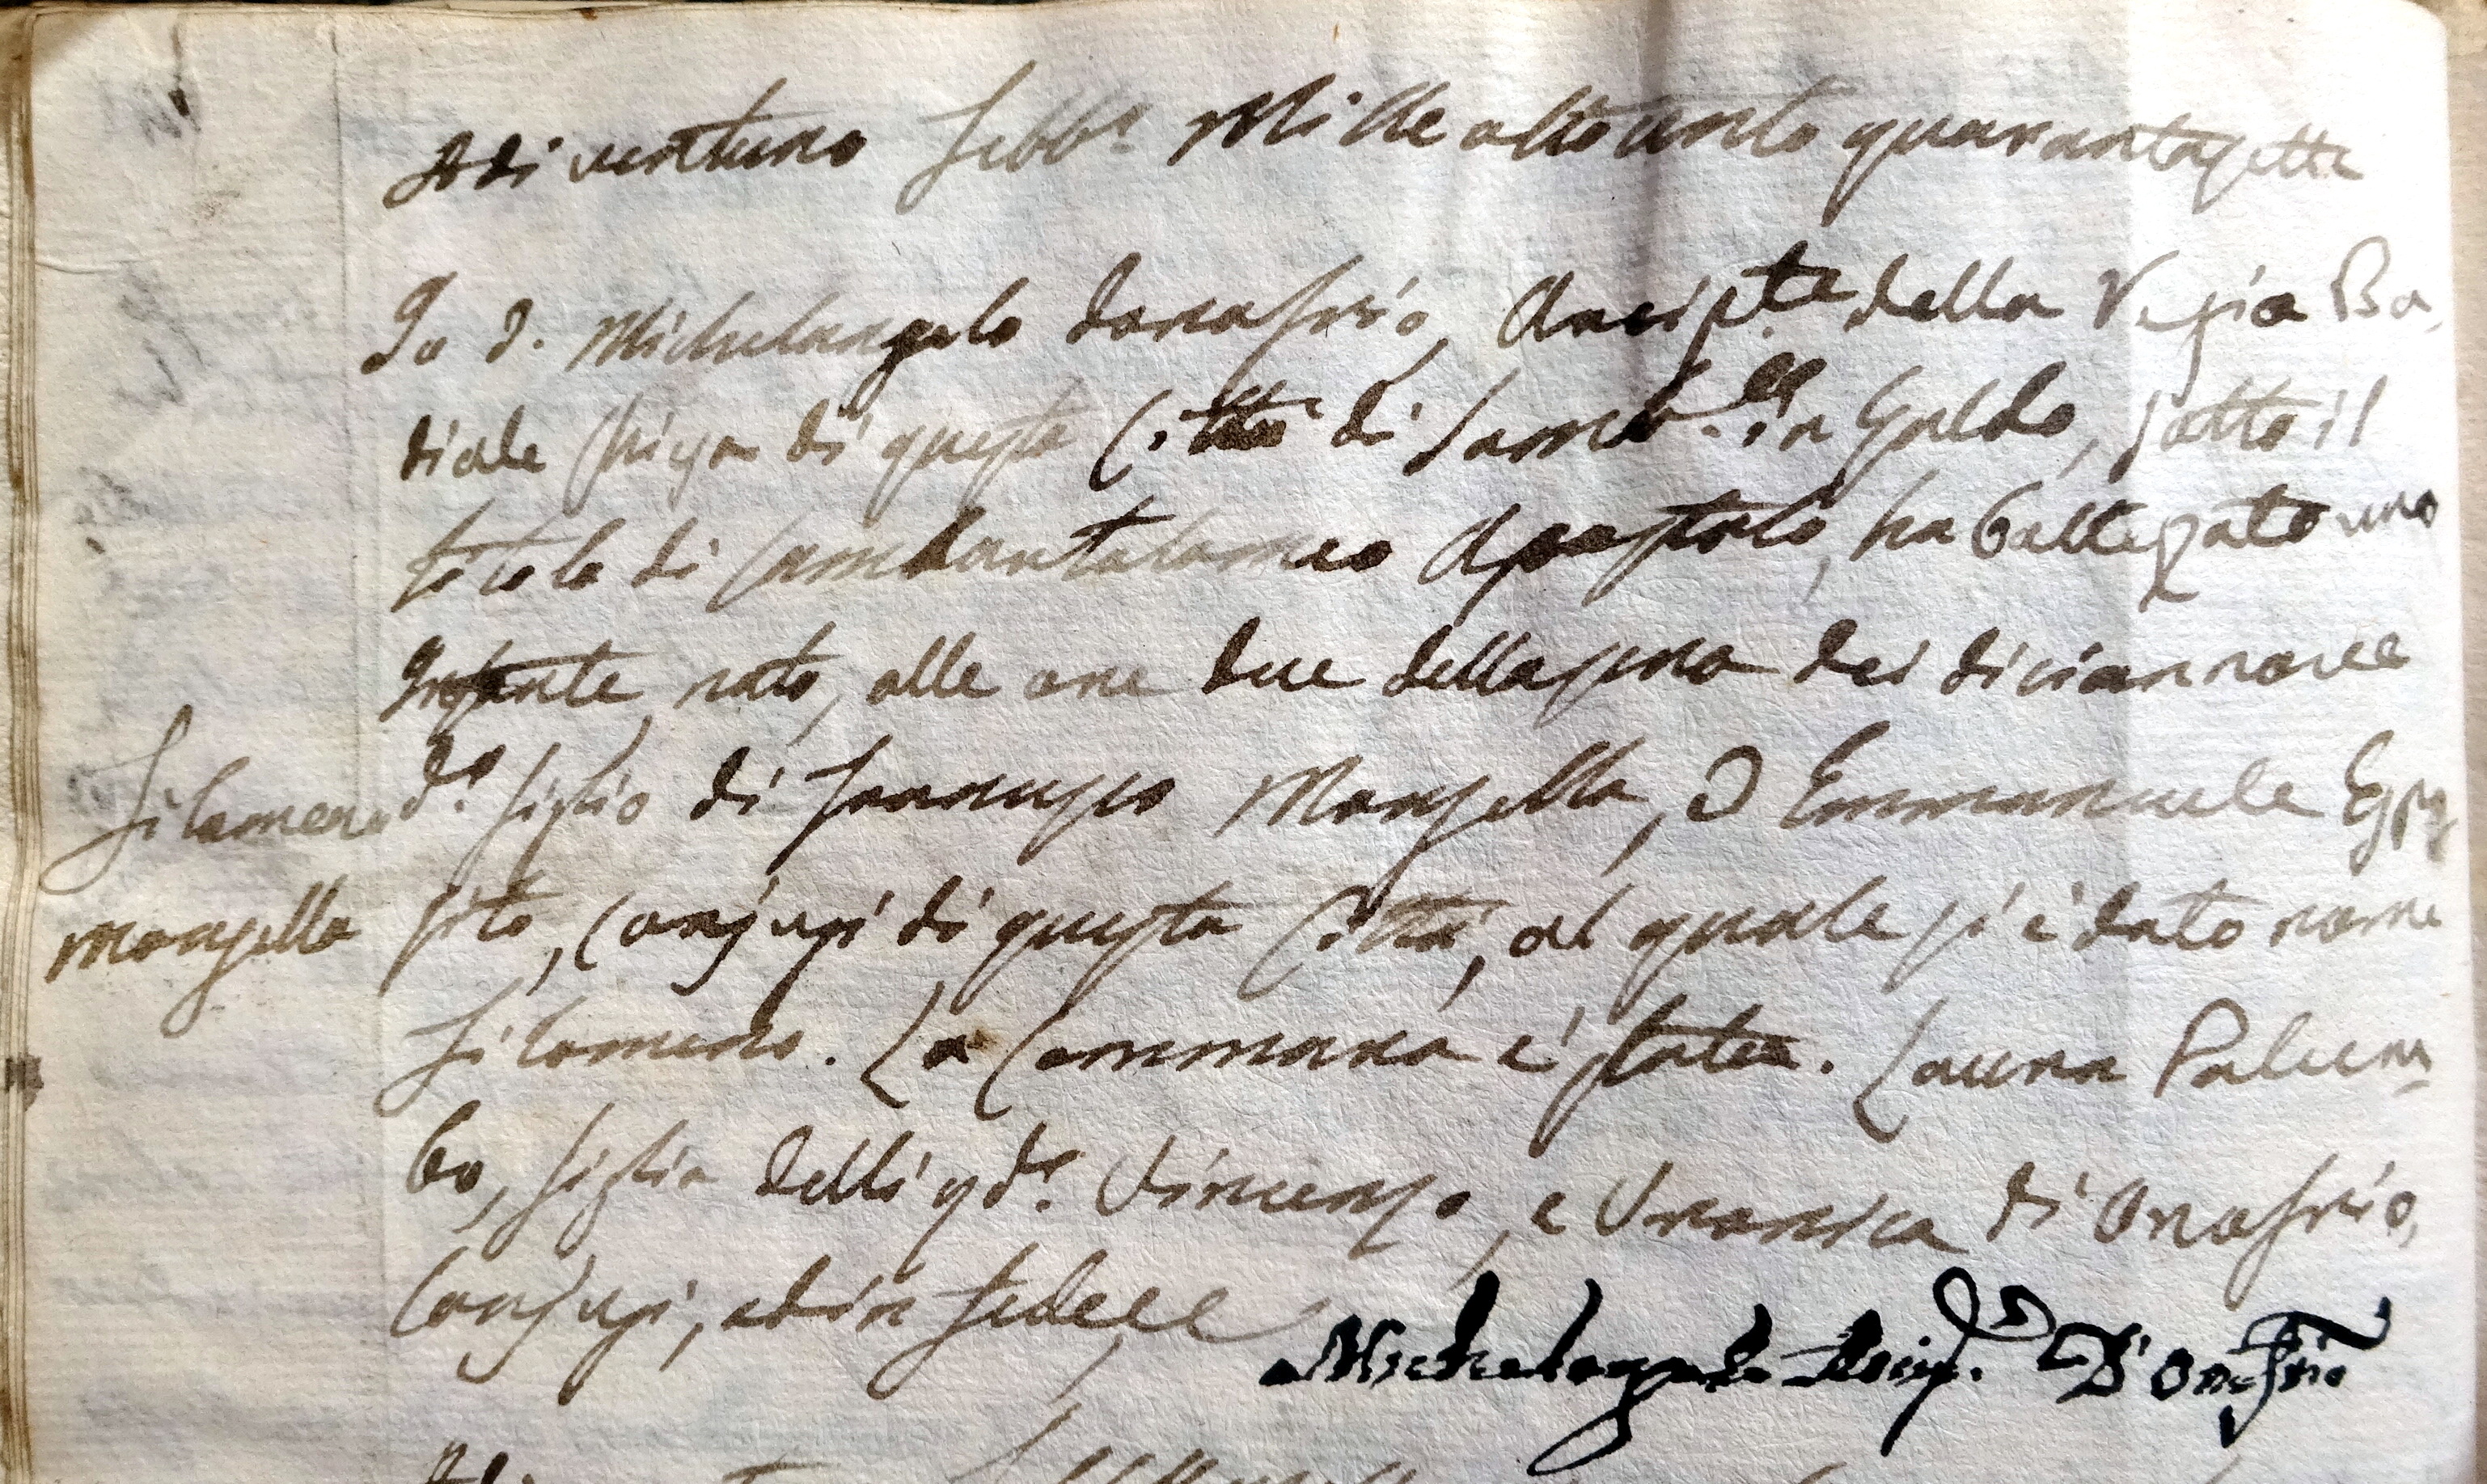 Adi ventuno Febb.o Mille ottocento quarantasette
Io D. Michelangelo Donofrio, Arcip.te della Regia Ba,
diale Chiesa di questa Città di Sanb.lli in Galdo, sotto il
titolo di Sambartolomeo Apostolo, ha battezato uno
Infante nato, alle ore due della sera dei dicciannove
d.o figlio di Francesco Monsella, e Emmanuele Espo
Filomeno
Monsella
sito, Conjugi di questa Città, al quale si è dato nome
Filomeno. La Commara è stata. Laura Palum
bo, figlia delli qd.m Vincenzo, e Veronica di Onofrio,
Conjugi, ed in fede
Michelangelo Arcip.e D'Onofrio